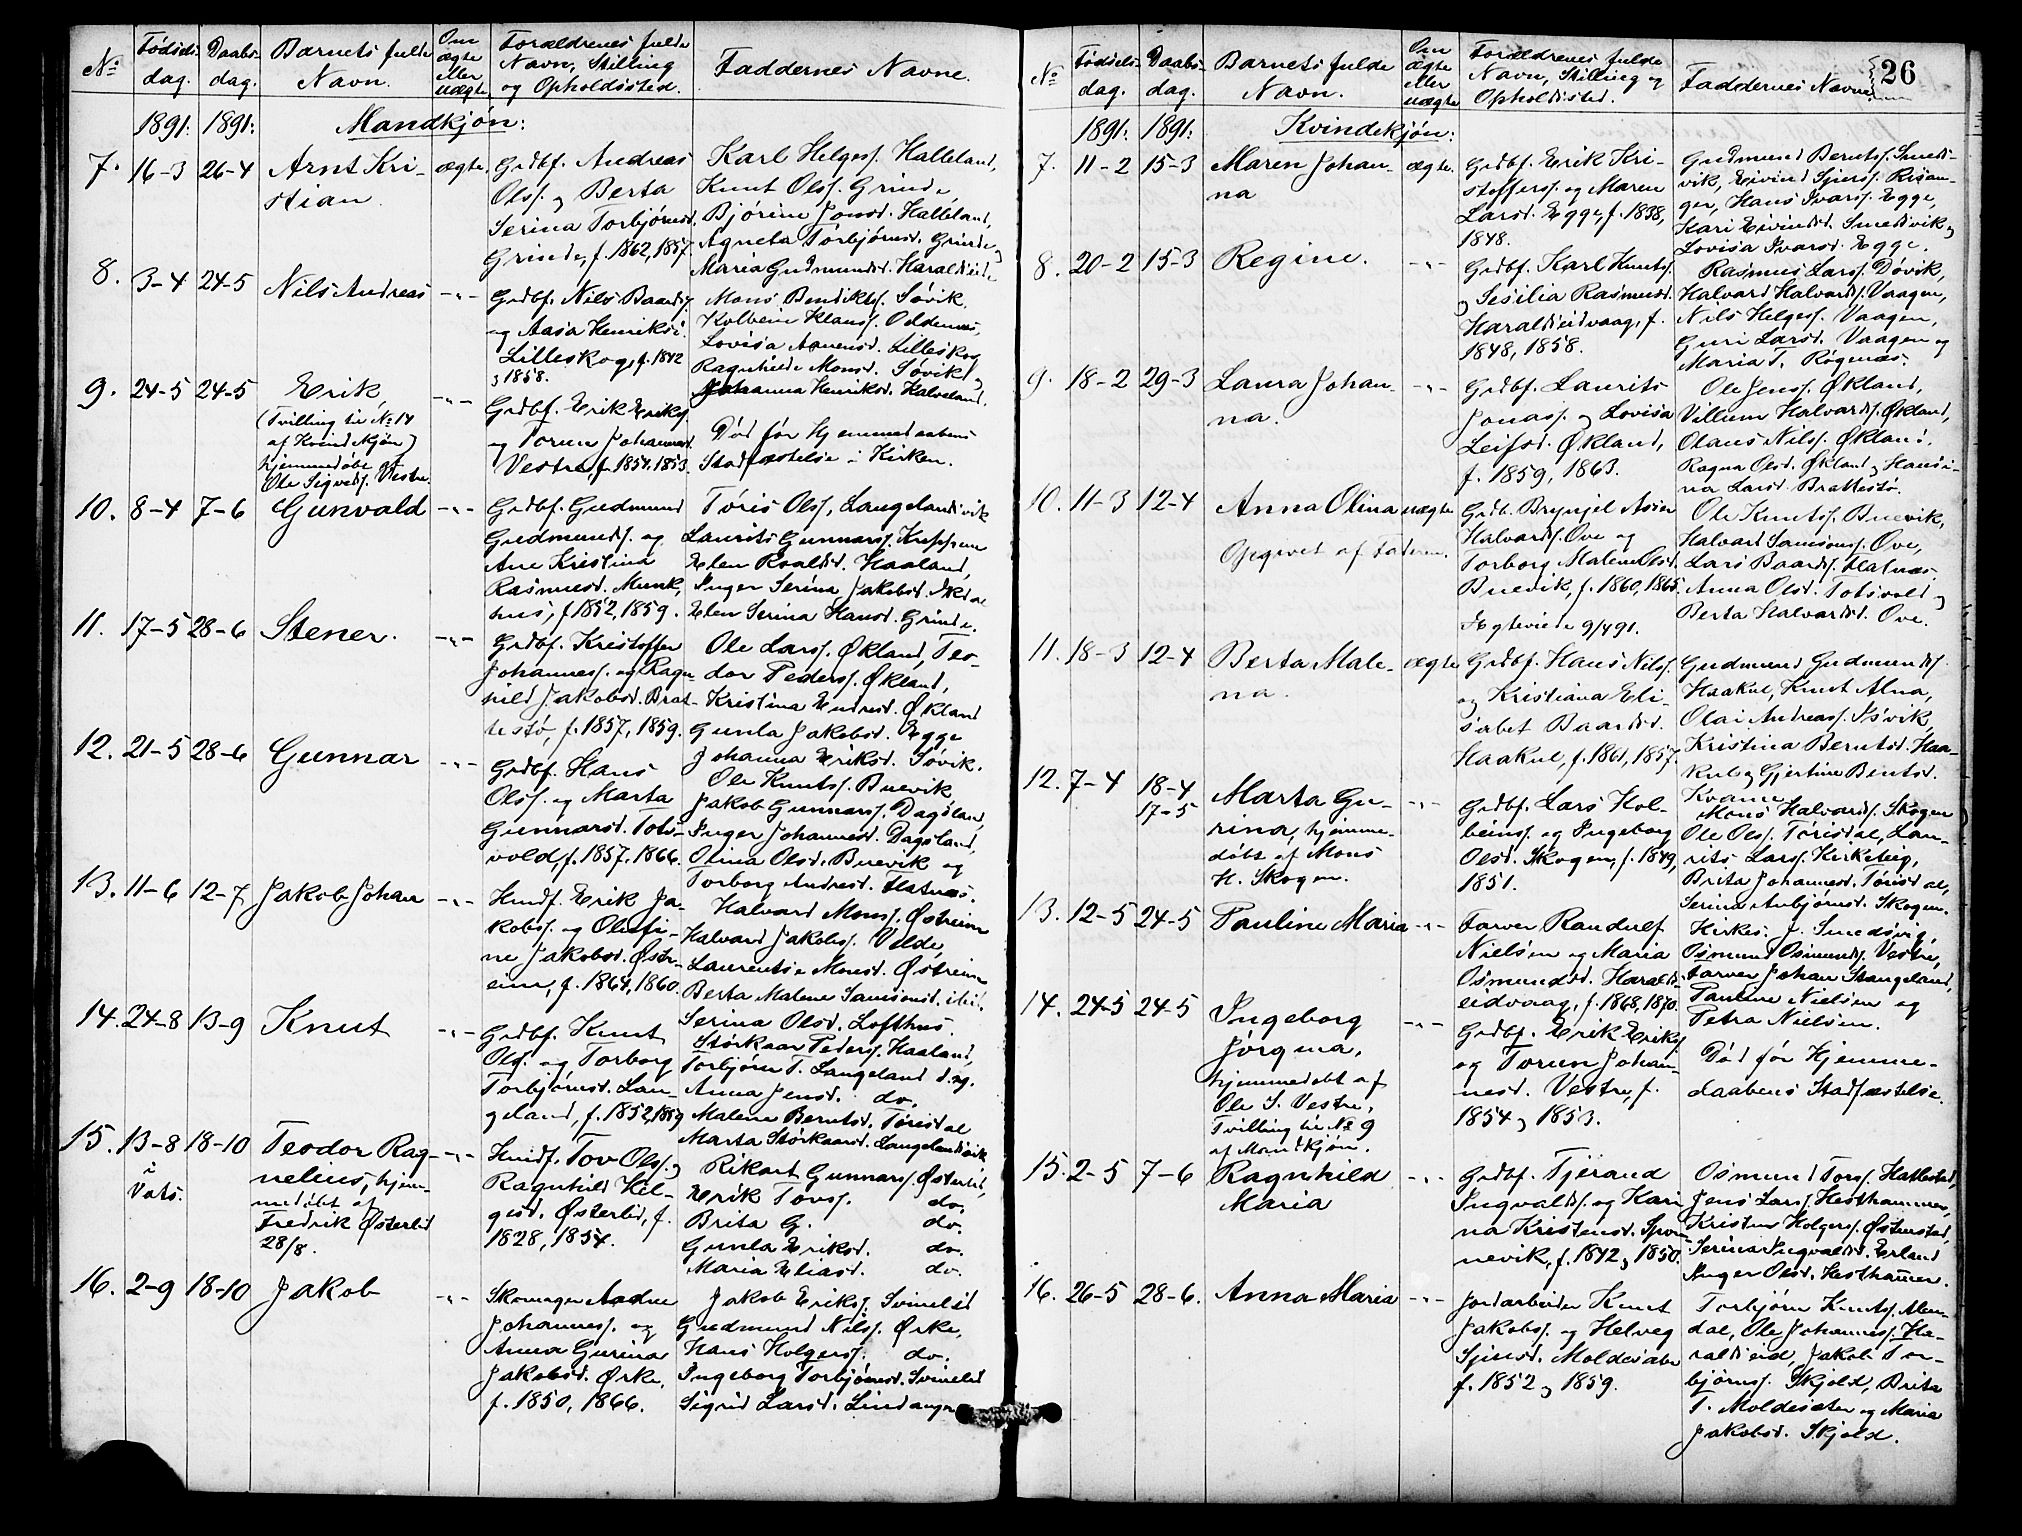 26
No
Fødsels-
dag.
Daabs-
dag.
Barnets fulde
Navn.
Om
ægte
eller
uægte
Forældrenes fulde
Navn, Stilling
og Opholdssted.
Faddernes Navne.
1891. 1891. Mandkjøn:
7. 16-3 26-4 Arnt Kri-
stian.
ægte.
Grdbf. Andreas
Olss. og Berta
Serina Torbjørnsd.
Grinde, f. 1862, 1857.
Karl Helgess. Halleland,
Knut Olss. Grinde,
Bjørine Jonsd. Halleland,
Agneta Torbjørnsd. Grinde og
Maria Gudmundsd. Haraldseide
8. 3-4 24-5 Nils Andreas
-"-
Grdbf. Nils Baards.
og Aasa Henriksd.
Lilleskog, f. 1842
og 1858.
Mons Bendiktss. Søvik,
Kolbein Klauss. Oddenes,
Lovisa Lilleskog
Ragnhilde Monsd. Søvik og
Johanna Henriksd. Halveland.
9. 24-5 24-5 Erik,
(Tvilling til No 14
af Kvindekjøn)
hjemmedøbt af
Ole Sigveds. Vestre.
-"-
Grdbf. Erik Eriks.
og Torun Johannesd.
Vestre, f. 1854, 1853.
Død før Hjemmedaabens
Stadfæstelse i Kirken.
10. 8-4 7-6 Gunvald
-"-
Grdbf. Gudmund
Gudmunds. og
Ane Kristina
Rasmusd. Munk-
hus, f. 1852, 1859.
Tøris Olss. Langelandsvik
Laurits Gunnarss. Kreppene
Elen Roaldsd. Haaland,
Inger Serine Jakobsd. Ikdal
Elen Serina Hansd. Grinde.
11. 17-5 28-6 Stener.
-"-
Grdbf. Kristoffer
Johanness. og Ragn-
hild Jakobsd. Brat-
testø, f. 1857, 1859.
Ole Larss. Økland, Teo-
dor Pederss. Økland,
Kristina Endresd. Økland
Gunla Jakobsd. Egge
Johanna Eriksd. Søvik.
12. 21-5 28-6 Gunnar
-"-
Grdbf. Hans
Olss. og Marta
Gunnarsd. Tots-
vold, f. 1857, 1866.
Ole Knutss. Buevik
Jakob Gunnarss. Dagsland,
Inger Johannesd. Dagsland,
Olina Olsd. Buevik og
Torborg Andresd. Flatnæs.
13. 11-6 12-7 Jakob Johan
-"-
Husf. Erik Ja-
kobss. og Olufi-
ne Jakobsd. Østr-
eim, f. 1864, 1860.
Halvard Monss. Østreim
Halvard Jakobss. Velde,
Laurentse Monsd. Østreim
Berta Malene Samsonsd. ibid.
Serina Olsd. Lofthus.
14. 24-8 13-9 Knut
-"-
Grdbf. Knut
Olss. og Torborg
Torbjørnsd. Lan-
geland, f. 1852, 1859
Størkaar Pederss. Haaland,
Torbjørn T. Langeland d. ng.
Anna Jensd. do.
Malene Berntsd. Tørisdal
Marta Størkaarsd. Langelandsvik
15. 13-8 18-10 Teodor Rag-
i
Vats.
nelius, hjem-
medøbt af
Fredrik Østerlid
28/8.
-"-
Husf. Tov Olss. og
Ragnhild Hel-
gesd. Østerlid, f.
1828, 1854.
Rikart Gunnarss. Østerlid,
Erik Tovs. do.
Brita G. do.
Gunla Eriksd. do.
Maria Eliasd. do.
16. 2-9 18-10 Jakob
-"-
Skomager Aadne
Johanness. og
Anna Gurina
Jakobsd. Ørke,
f. 1850, 1866.
Jakob Erikss. Svinelid
Gudmund Nilss. Ørke,
Hans Holgerss. do.
Ingeborg Torbjørnsd. Svinelid
Sigrid Larsd. Lindanger
No
Fødsels-
dag.
Daabs-
dag.
Barnets fulde
Navn.
Om
ægte
eller
uægte
Forældrenes fulde
Navn, Stilling og
Opholdssted.
Faddernes Navne
1891. 1891. Kvindekjøn:
7. 11-2 15-3 Maren Johan-
na
ægte.
Grdbf. Erik Kri-
stofferss. og Maren
Larsd. Egge, f. 1838,
1848.
Gudmund Berntss. Smeds-
vik, Eivind Sjurss. Risan-
ger, Hans Ivarss. Egge,
Kari Eivindsd. Smedsvik og
Lovisa Ivarsd. Egge.
8. 20-2 15-3 Regine.
-"-
Grdbf. Karl Knuts.
og Sesilia Rasmusd.
Haraldseidvaag, f.
1848, 1858.
Rasmus Larss. Døvik,
Halvard Halvards. Vaagen,
Nils Helgess. Vaagen,
Guri Larsd. Vaagen og
Maria T. Røgenæs.
9. 18-2 29-3 Laura Johan
na.
-"-
Grdbf. Laurits
Jonass. og Lovisa
Leifsd. Økland,
f. 1859, 1863.
Ole Jenss. Økland,
Villum Halvards. Økland,
Olaus Nilss. Økland,
Ragna Olsd. Økland og Hansi-
na Larsd. Brattestø.
10. 11-3 12-4 Anna Olina
uægte
Opgivet af Faderen.
Grdb. Brynjel Asser
Halvards. Ove og
Torborg Malene Olsd.
Buevik, f. 1860, 1865.
Egteviede 9/4 91.
Ole Knutss. Buevik,
Halvard Samsonss. Ove,
Lars Baards. Flatnæs,
Anna Olsd. Totsvold og
Berta Halvardsd. Ove.
11. 18-3 12-4 Berta Male-
na.
ægte
Grdbf. Hans Nilss.
og Kristiana Eli-
sabet Baardsd.
Haakul, f. 1861, 1857.
Gudmund Gudmunds.
Haakul, Knut Alna,
Olai Andreass. Isvik,
Kristina Berntsd. Haa-
kul og Gjertine Bentsd.
Kvame.
12. 7-4 18-4
17-5
Marta Gu-
rina, hjemme-
døbt af Mons
H. Skogen.
-"-
Grdbf. Lars Kol-
beinss. og Ingeborg
Olsd. Skogen, f. 1849,
1851.
Mons Halvards. Skogen
Ole Olss. Tørisdal, Lau-
rits Larss. Kirketeig,
Brita Johannesd. Tørisdal,
Serina Anbjørnsd. Skogen.
13. 12-5 24-5 Pauline Maria
-"-
Farver Randulf
Nielsen og Maria
Osmundsd. Haralds-
eidvaag, f. 1868, 1870.
Kirkes. J. Smedsvig,
Osmund Osmunds. Vestre,
Farver Johan Stangeland,
Pauline Nielsen og
Petra Nielsen.
14. 24-5 24-5 Ingeborg
Jørgina,
hjemmedøbt af
Ole S. Vestre,
Tvilling til No 9
af Mandkjøn.
-"-
Grdbf. Erik Eriks.
og Torun Johan-
nesd. Vestre, f.
1854 og 1853.
Død før Hjemme-
daabens Stadfæstelse.
15. 2-5 7-6 Ragnhild
Maria
-"-
Grdbf. Tjerand
Ingvalds. og Kari-
na Kristensd. Spon-
nevik, f. 1842 og 1850.
Osmund Torss. Hatlestad,
Jens Larss. Hesthammer,
Kristen Holgerss. Østenstad,
Serina Ingvaldsd. Erland
Inger Olsd. Hesthammer.
16. 26-5 28-6. Anna Maria
-"-
Jordarbeider Knut
Jakobss. og Helveg
Sjursd. Moldesæter
f. 1852 og 1859.
Torbjørn Knutss. Alen-
dal, Ole Johanness. Ha-
raldseid, Jakob Tor-
bjørnss. Skjold, Brita
T. Moldesæter og Maria
Jakobsd. Skjold.